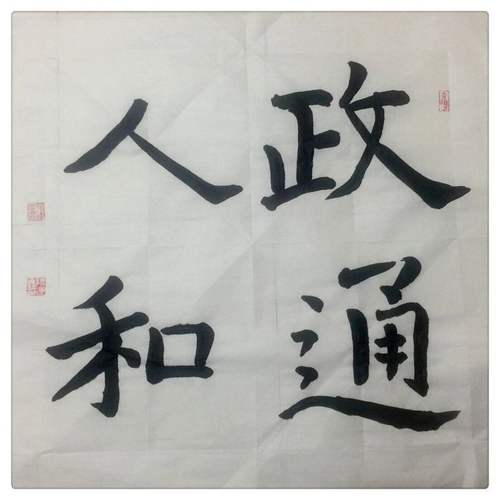 政通
人和